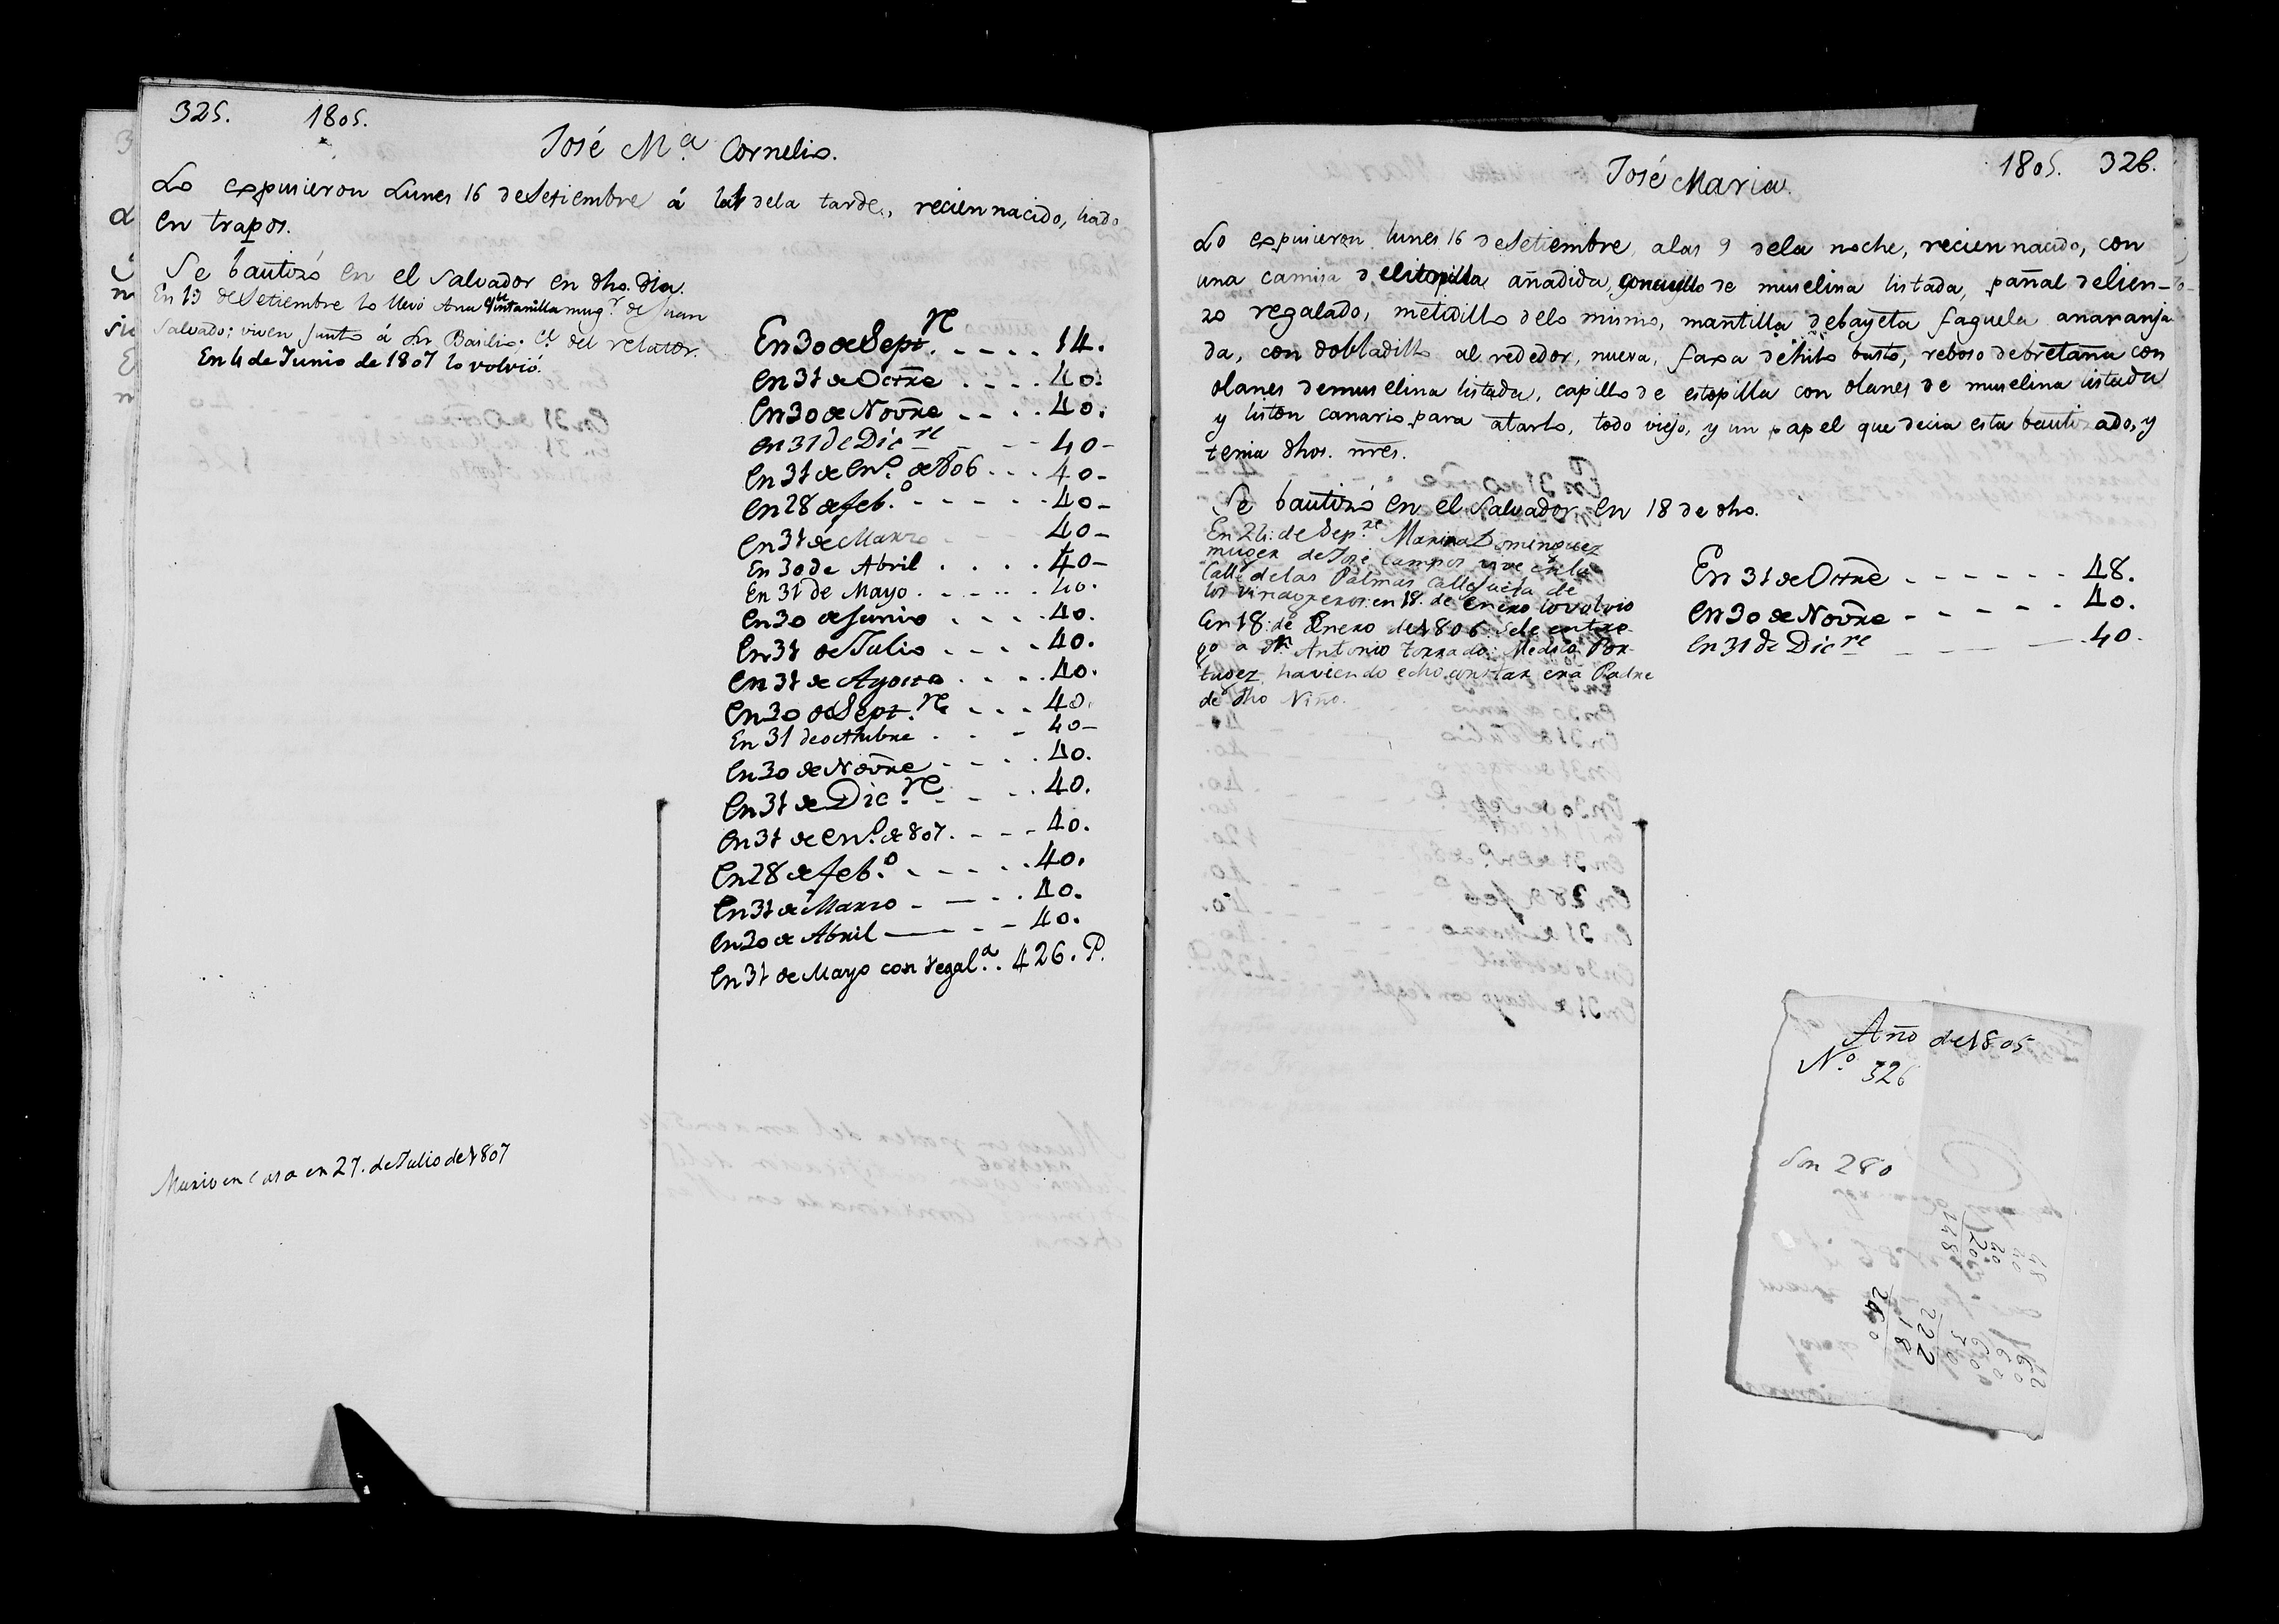 325. 1805.
José M.ª Cornelio.
Lo expusieron Lunes 16 de Setiembre á la 1 dela tarde, recien nacido, liado
en trapos.
Se bautizó en el Salvador en dho. dia.
En 19 de Setiembre lo llevó Ana Quintanilla mug.r de Juan
Salvado; viven junto á Sn. Basilio. C.e del relator.
En 4 de Junio de 1807 lo volvió.
En 30 de Sept.re - - - - 14.
En 31 de Octre . . . . 40.
En 30 de Novre - - . . 40.
en 31 de Dic.re - - - 40-
En 31 de En.o de 806 . . . 40-
En 28 de feb.o - - - - - 40-
En 31 de Marzo - - - 40-
En 30 de Abril . . . . 40-
En 31 de Mayo . - . . . 40.
En 30 de Junio . . . . 40.
En 31 de Julio - - - - 40.
En 31 de Agosto . . . . 40.
En 30 de Sept.re . . . 40.
En 31 de octubre . . - 40-
En 30 de Novre - - - . 40.
En 31 de Dic.re - - - . 40.
En 31 de En.o de 807. - - - 40.
En 28 de feb.o - - - - . 40.
En 31 de Marzo - - - . . 40.
En 30 de Abril - - - - 40.
En 31 de Mayo con regal.a . . 426. P.
Murio en casa en 27. de Julio de 1807
1805. 326.
José Maria.
Lo expusieron lunes 16 de Setiembre, alas 9 dela noche, recien nacido, con
una camisa de añadida, de muselina listada, pañal de lien-
zo regalado, metidillo delo mismo, mantilla de bayeta faguela anaranja
da, con dobladillo al rededor, nueva, faxa de hilo basto, reboso de bretaña con
olanes de muselina listada, capillo de estopilla con olanes de muselina listada
y liston canario para atarlo, todo viejo, y un papel que decia esta bautizado, y
tenia dhos. nres.
Se bautizó en el Salvador en 18 de dho.
En 24: de Sep.re Maria Dominguez
muger de José Campos vive en la
Calle de las Palmas Callejuela de
los en 18. de Enero lo volvio
En 18: de Enero de 1806. se le entre-
go a Dn. Antonio Torrado: Medico Por-
tugez haviendo echo constar era Padre
de dho Niño.
En 31 de Octre - - - - - - 48.
En 30 de Novre - - - - - 40.
En 31 de Dic.re - - - - 40.
Año de 1805
N.o 326
Son 280